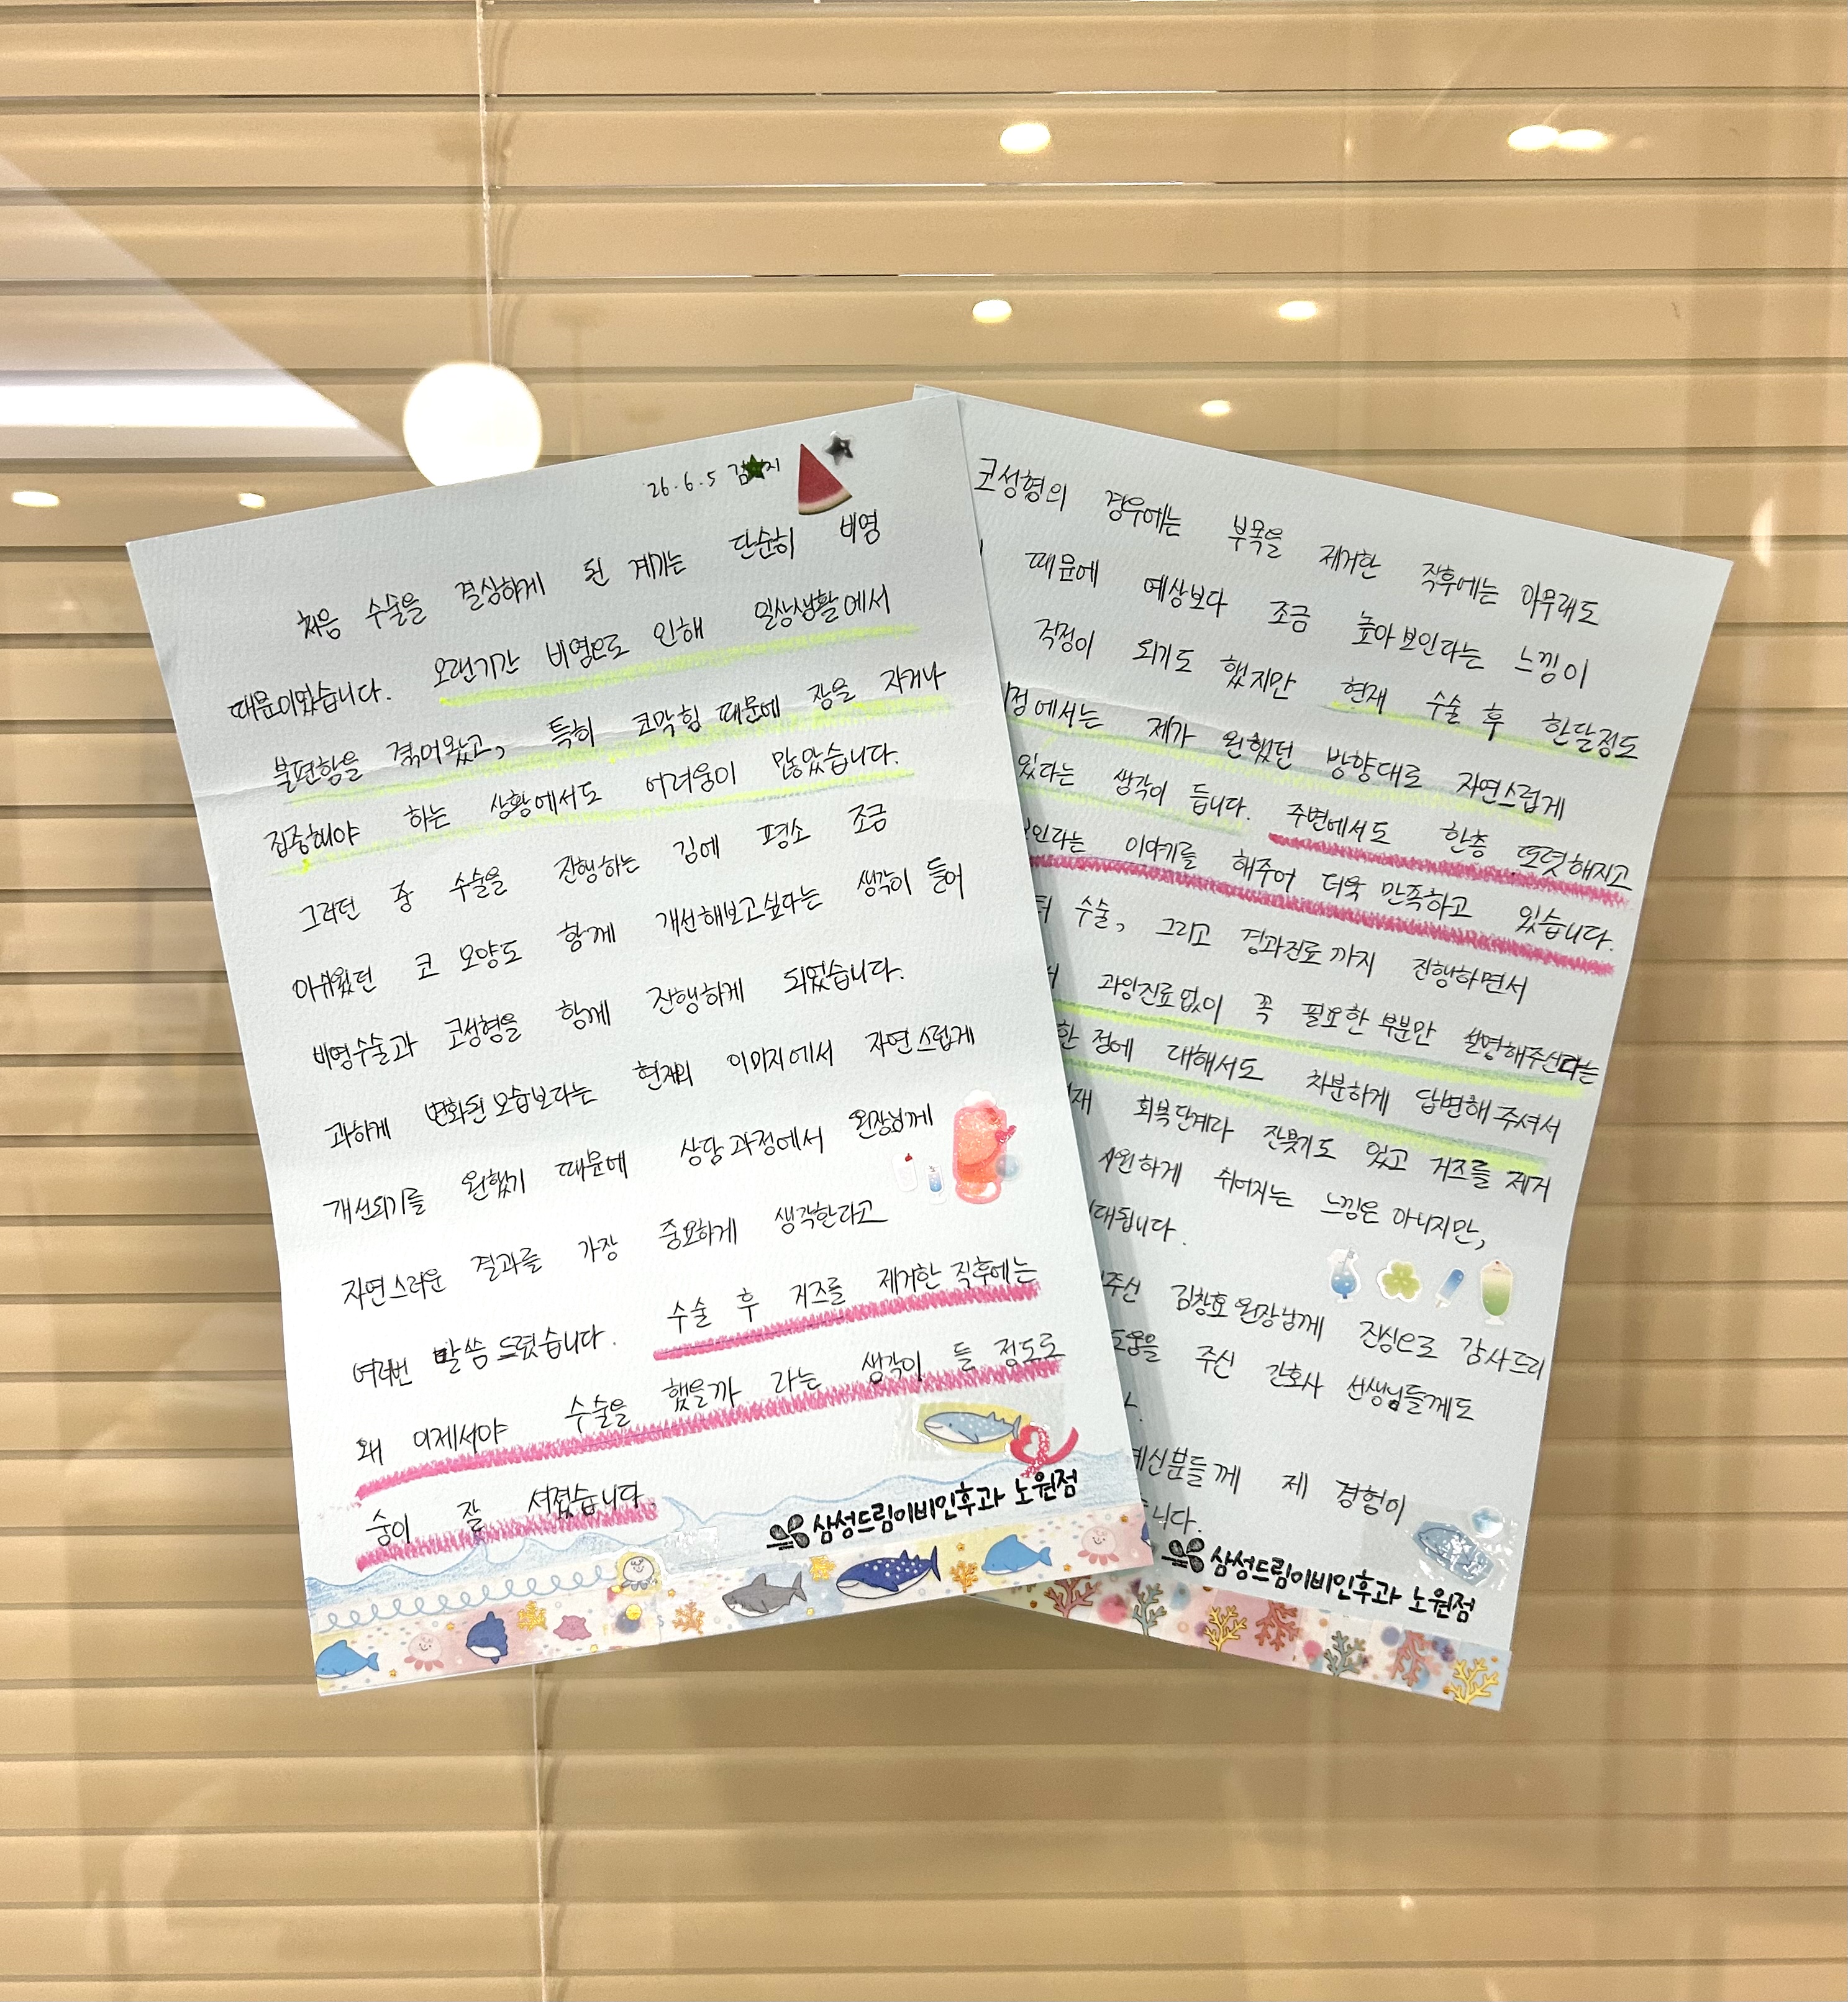 26.6.5 김 지
처음 수술을 결심하게 된 계기는 단순히 비염
때문이었습니다. 오랜기간 비염으로 인해 일상생활에서
불편함을 겪어왔고, 특히 코막힘 때문에 잠을 자거나
집중해야 하는 상황에서도 어려움이 많았습니다.
그러던 중 수술을 진행하는 김에 평소 조금
아쉬웠던 코 모양도 함께 개선해보고싶다는 생각이 들어
비염수술과 코성형을 함께 진행하게 되었습니다.
과하게 변화된 모습보다는 현재의 이미지에서 자연스럽게
개선되기를 원했기 때문에 상담과정에서 원장님께
자연스러운 결과를 가장 중요하게 생각한다고
여러번 말씀 드렸습니다. 수술 후 거즈를 제거한 직후에는
왜 이제서야 수술을 했을까 라는 생각이 들 정도로
숨이 잘 쉬어졌습니다.
삼성드림이비인후과 노원점
코성형의 경우에는 부목을 제거한 직후에는 아무래도
때문에 예상보다 조금 높아보인다는 느낌이
걱정이 되기도 했지만 현재 수술 후 한달정도
에서는 제가 원했던 방향대로 자연스럽게
있다는 생각이 듭니다. 주변에서도 한층 또렷해지고
보인다는 이야기를 해주어 더욱 만족하고 있습니다.
수술, 그리고 경과진료까지 진행하면서
과잉진료없이 꼭 필요한 부분만 설명해주신다는
한 점에 대해서도 차분하게 답변해주셔서
회복단계라 잔붓기도 있고 거즈를 제거
시원하게 쉬어지는 느낌은 아니지만,
대됩니다.
주신 김창호 원장님께 진심으로 감사드리
도움을 주신 간호사 선생님들께도
계신분들께 제 경험이
니다.
삼성드림이비인후과 노원점